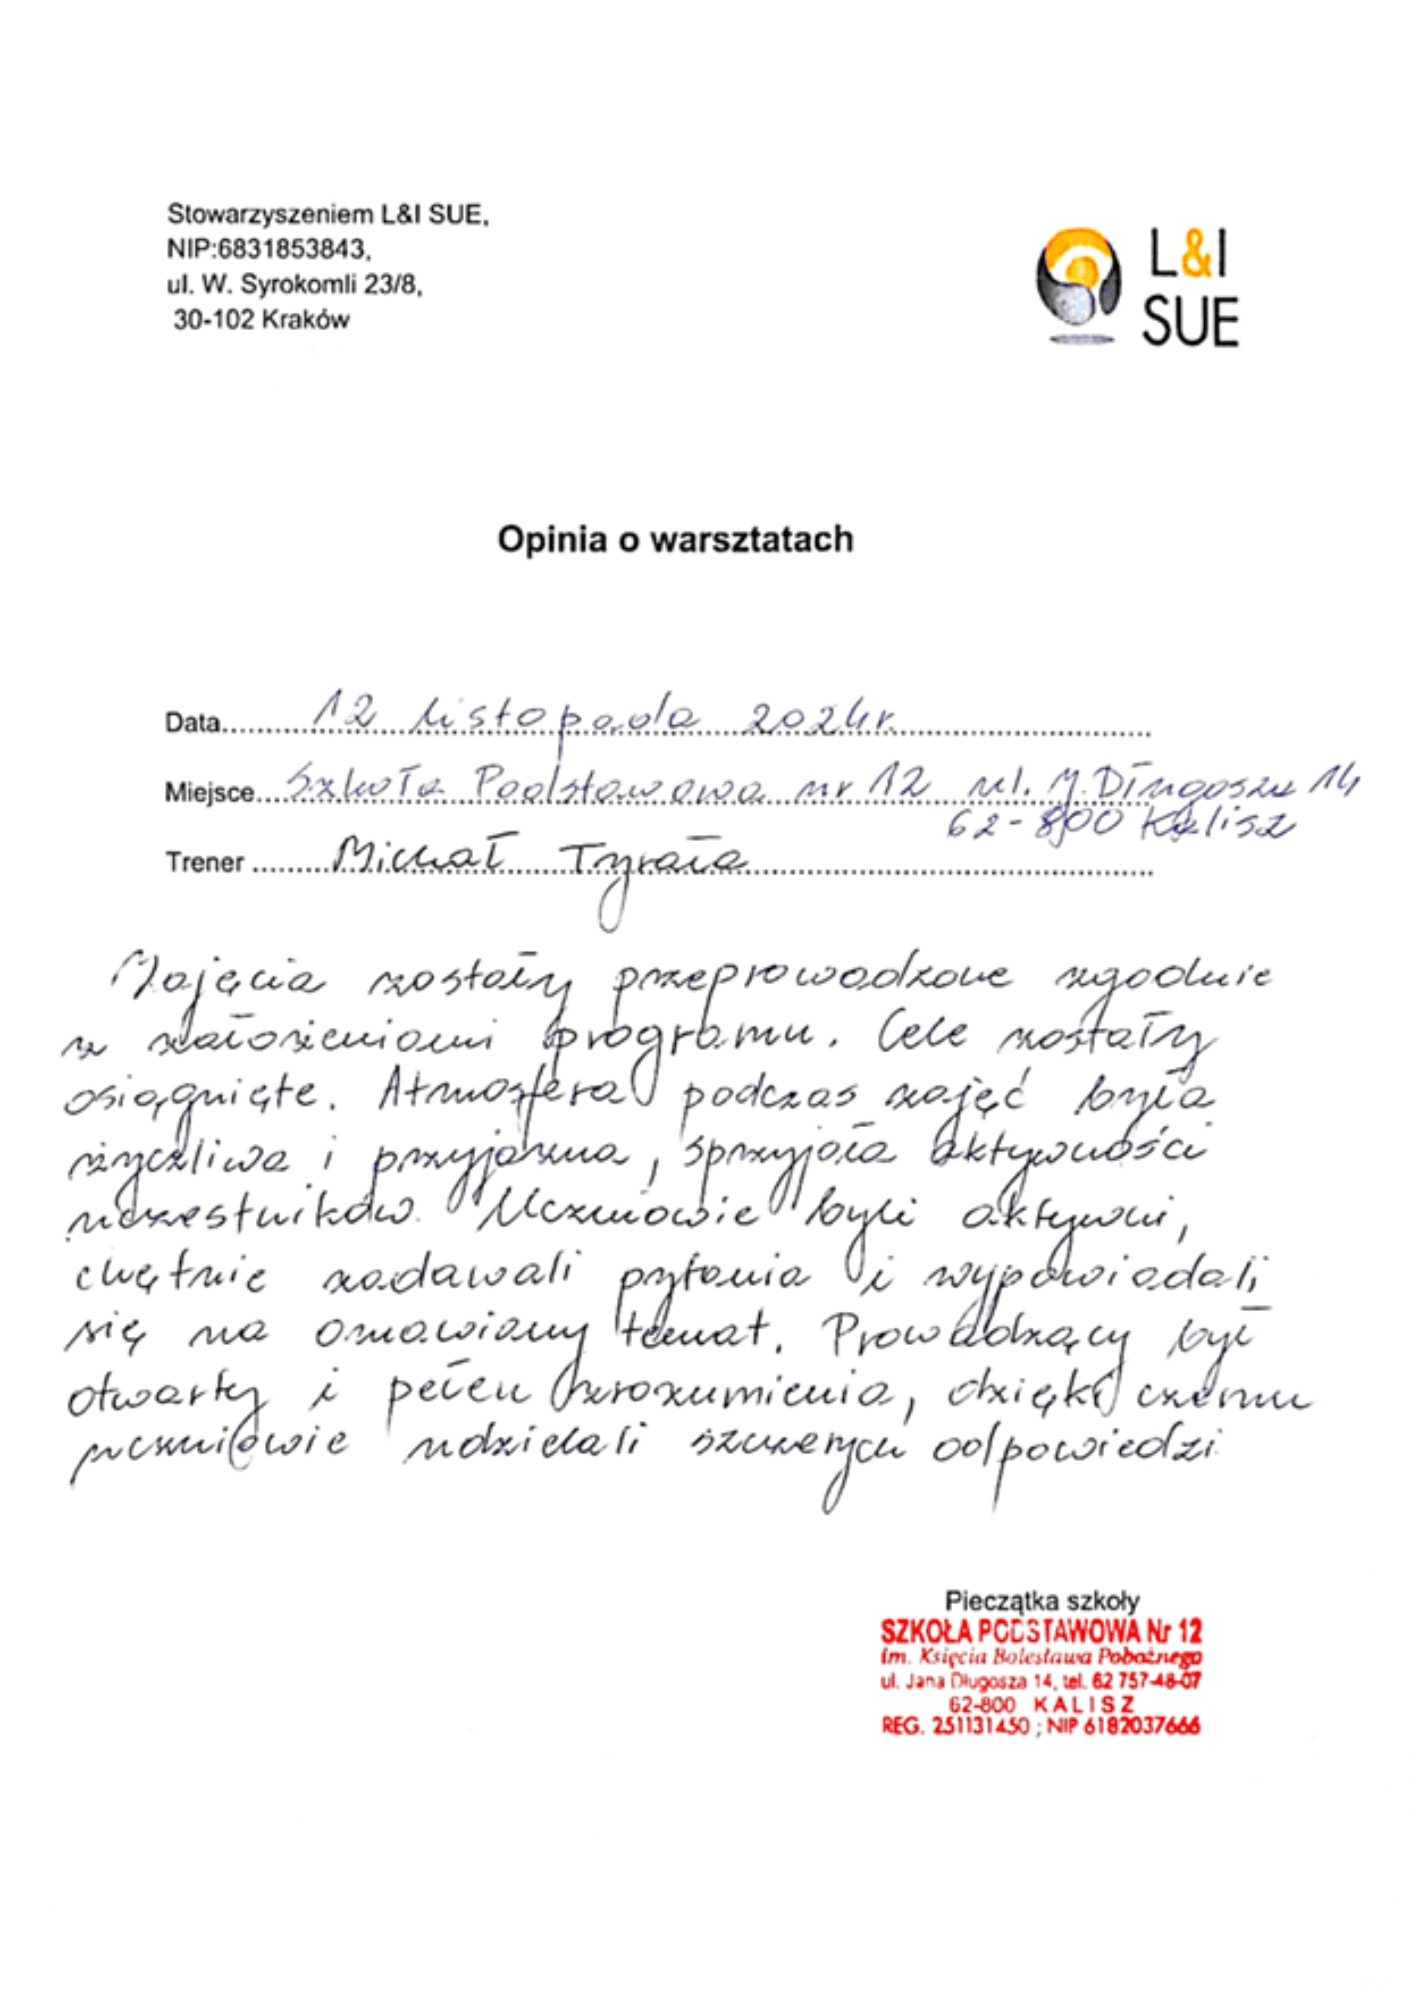 Stowarzyszeniem L&I SUE,
NIP:6831853843,
ul. W. Syrokomli 23/8,
30-102 Kraków
L&I
SUE
Opinia o warsztatach
Data 12 listopada 2024r.
Miejsce Szkoła Podstawowa nr 12 ul. J. Długosza 14
62-800 Kalisz
Trener Michał Tyrała
Zajęcia zostały przeprowadzone zgodnie
z założeniami programu. Cele zostały
osiągnięte. Atmosfera podczas zajęć była
życzliwa i przyjazna, sprzyjała aktywności
uczestników. Uczniowie byli aktywni,
chętnie zadawali pytania i wypowiadali
się na omawiany temat. Prowadzący był
otwarty i pełen zrozumienia, dzięki czemu
uczniowie udzielali szczerych odpowiedzi.
Pieczątka szkoły
SZKOŁA PODSTAWOWA Nr 12
im. Księcia Bolesława Pobożnego
ul. Jana Długosza 14, tel. 62 757-48-07
62-800 KALISZ
REG. 251131450 ; NIP 6182037666